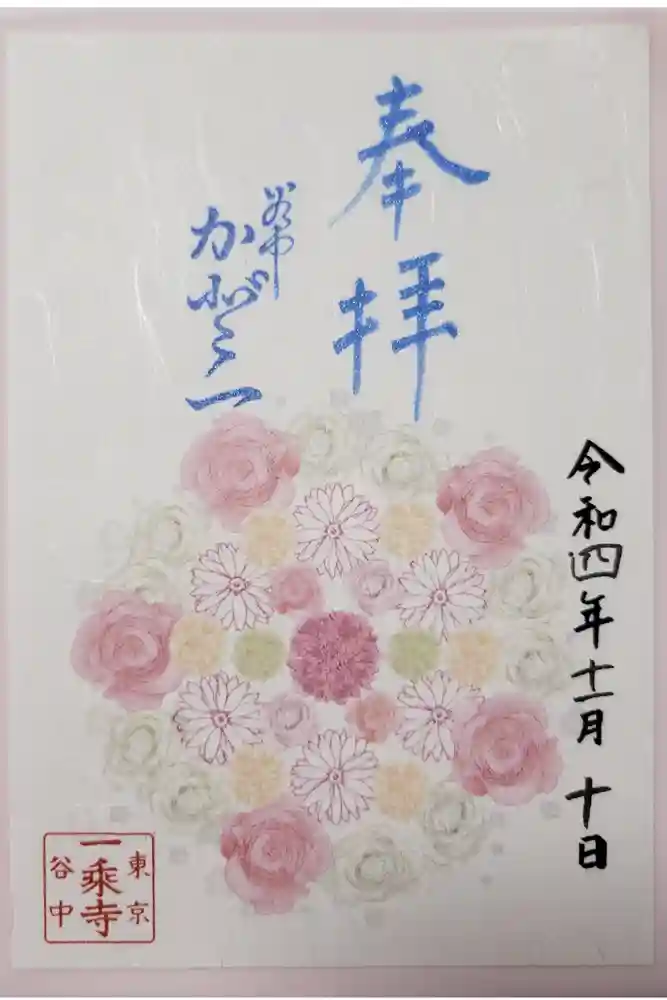 奉拝
谷中
令和四年十一月十日
東京
一乗寺
谷中